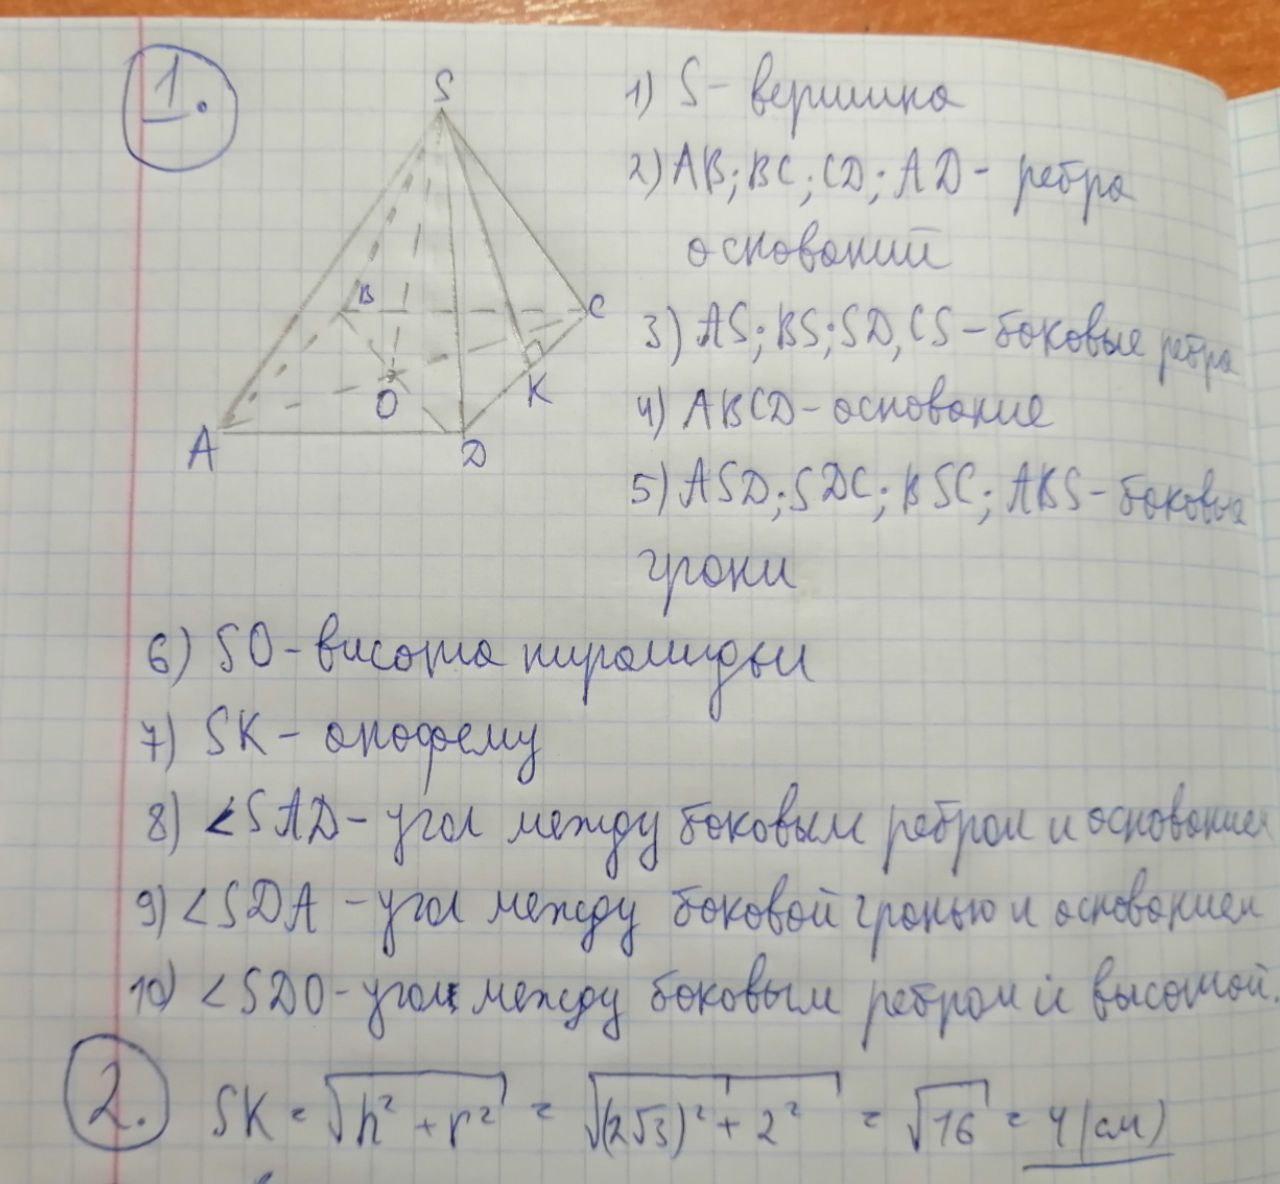 1.
S
B
C
O
K
A
D
1) S - вершина
2) AB; BC; CD; AD - ребра
оснований
3) AS; BS; SD, CS - боковые ребра
4) ABCD - основание
5) ASD; SDC; BSC; ABS - боковые
грани
6) SO - висота пирамиды
7) SK - апофему
8) ∠SAD - угол между боковым ребром и основанием
9) ∠SDA - угол между боковой гранью и основанием
10) ∠SDO - угол между боковым ребром и высотой.
2. SK = √(h² + r²) = √((2√3)² + 2²) = √16 = 4 (см)